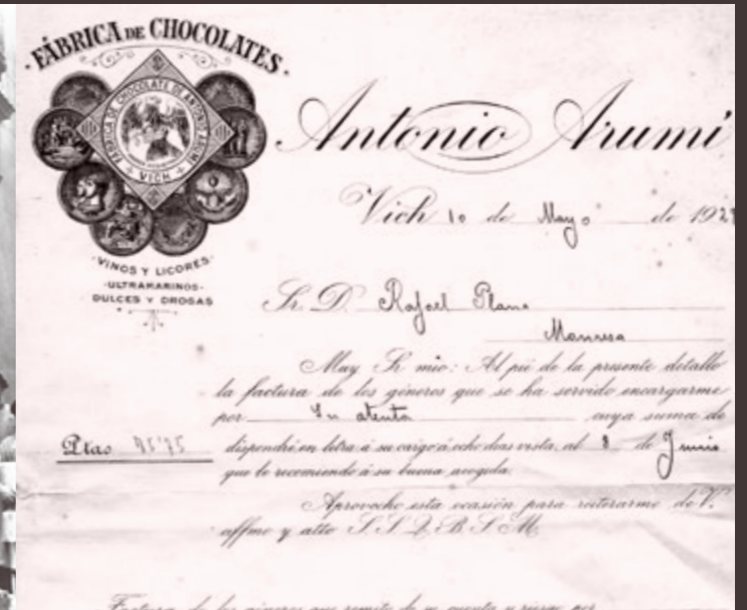 FÁBRICA DE CHOCOLATES.
FÁBRICA DE CHOCOLATE DE ANTONIO ARUMI
VICH
VINOS Y LICORES.
ULTRAMARINOS
DULCES Y DROGAS
Antonio Arumí
Vich 10 de Mayo de 192
Sr. D. Rafael Plans
Manresa
Muy Sr. mio: Al pié de la presente detallo
la factura de los géneros que se ha servido encargarme
por Su atenta cuya suma de
Ptas 95'75 dispondré en letra á su cargo á ocho dias vista, al 8 de Junio
que le recomiendo á su buena acogida.
Aprovecho esta ocasión para reiterarme de V.
affmo y atto S. S. Q. B. S. M.
Factura de los géneros que remite de su cuenta y riesgo por